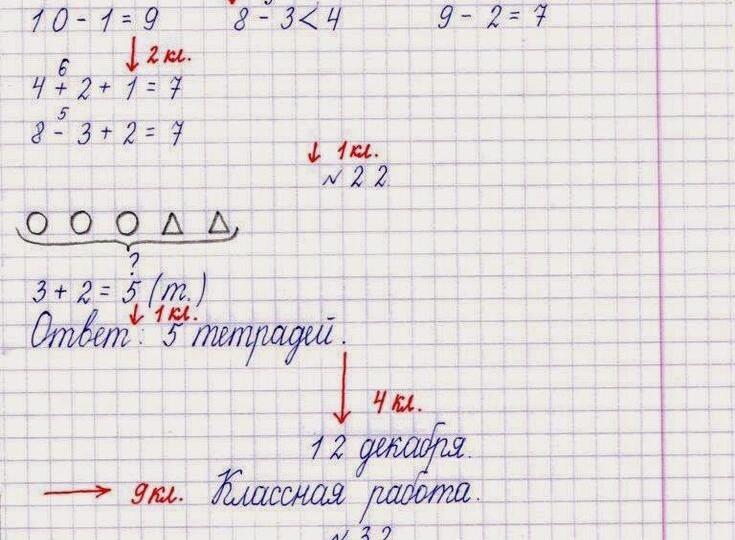 10 - 1 = 9 8 - 3 < 4 9 - 2 = 7
2 кл.
6
4 + 2 + 1 = 7
5
8 - 3 + 2 = 7
1 кл.
№ 22
?
3 + 2 = 5 (т.)
1 кл.
Ответ: 5 тетрадей.
4 кл.
12 декабря.
9 кл. Классная работа.
№ 32